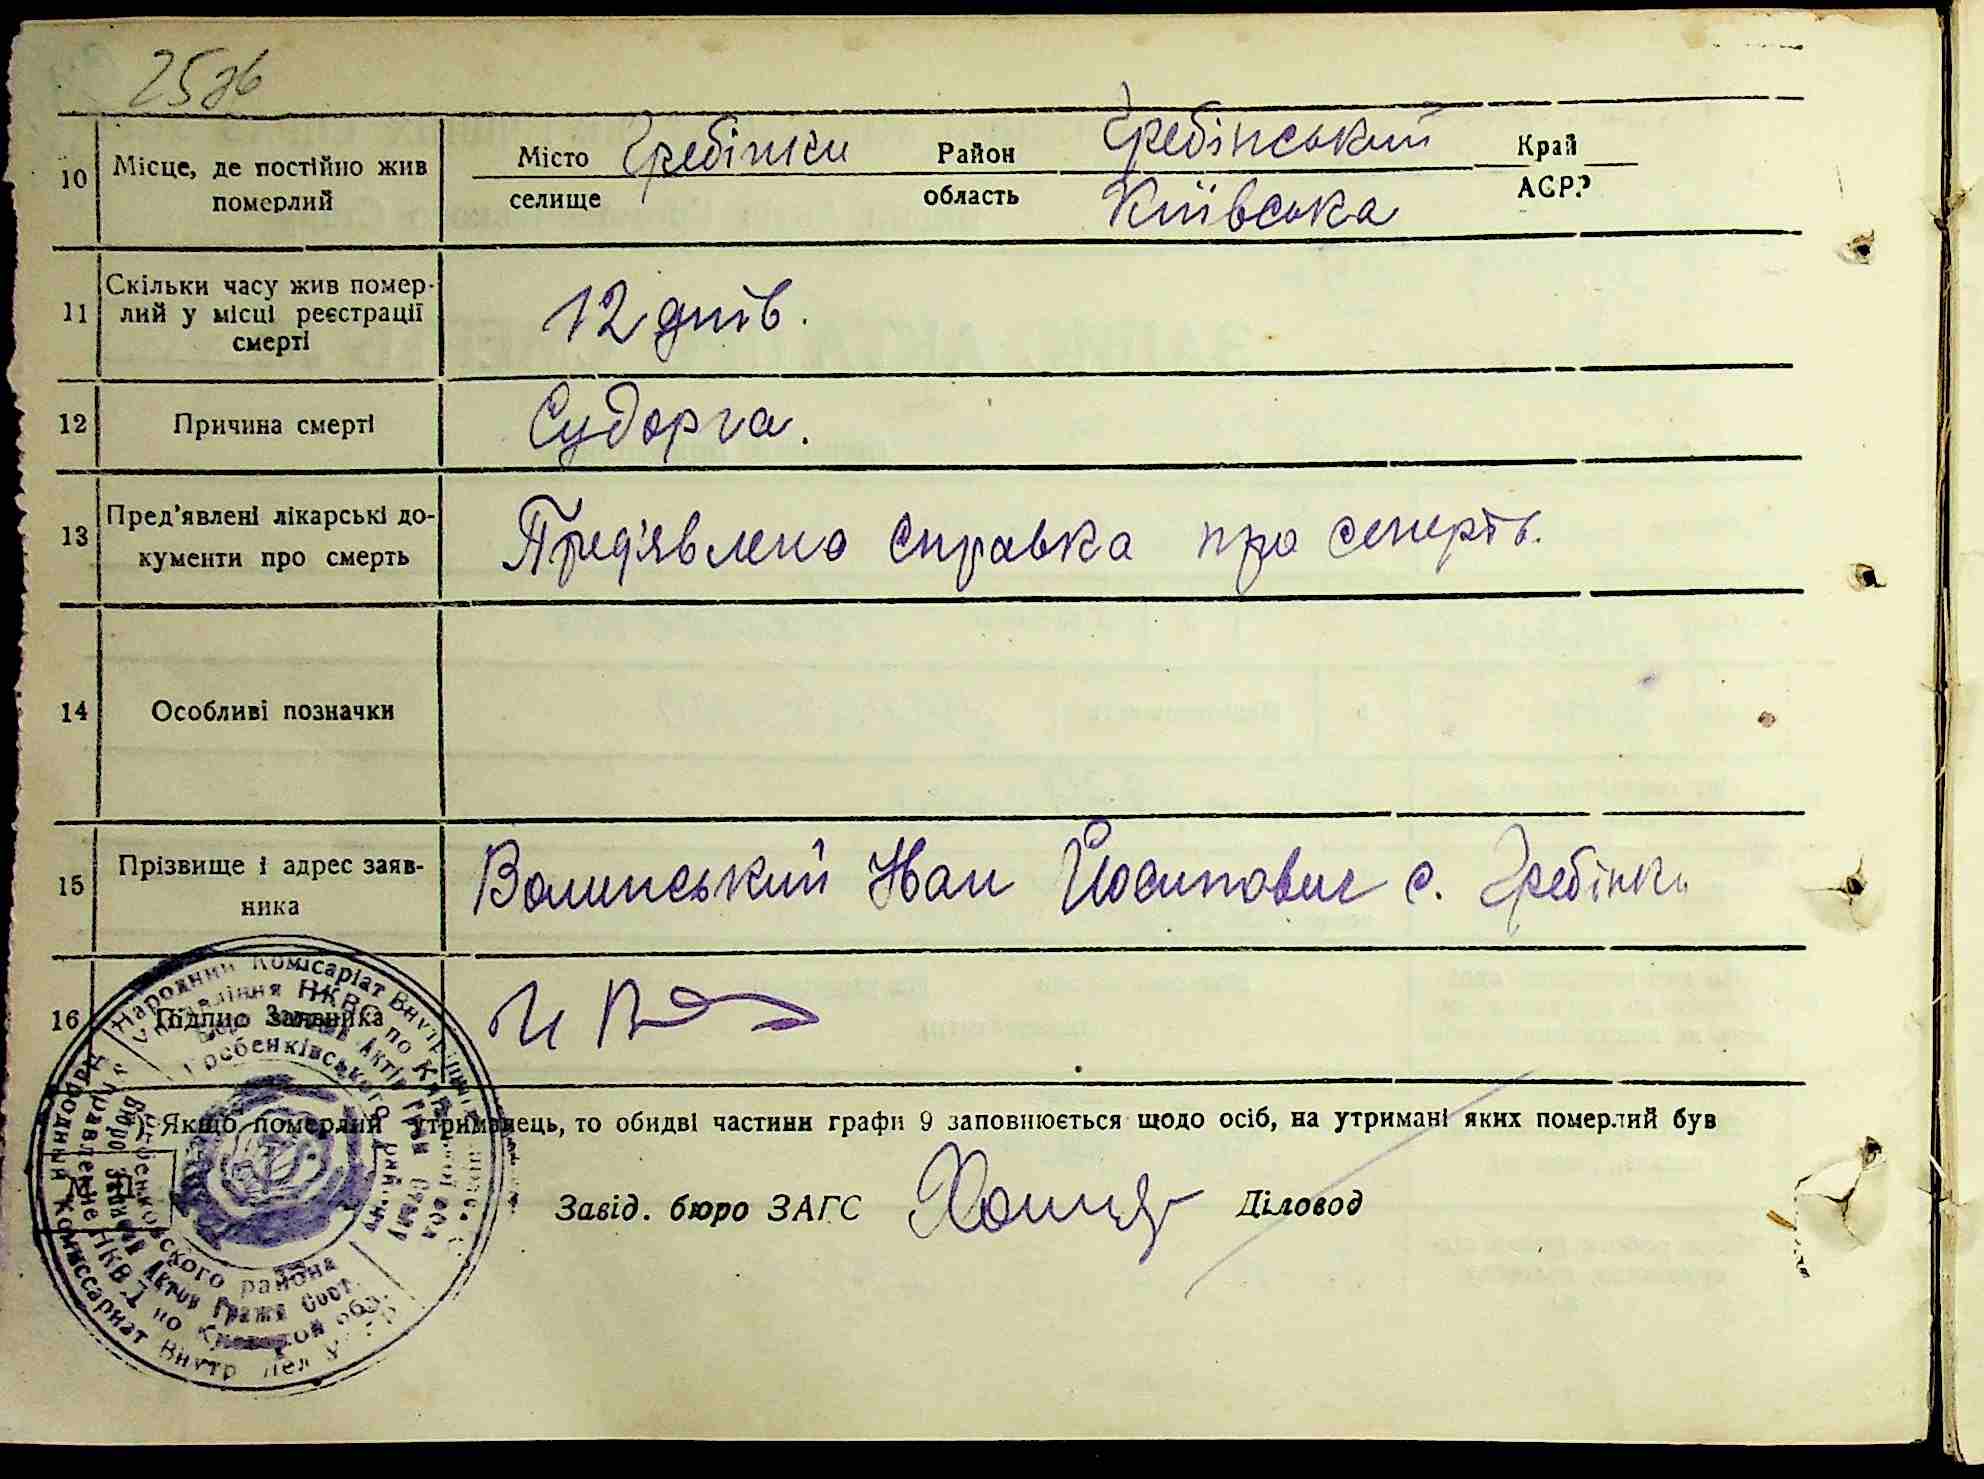 25зв
10 Місце, де постійно жив померлий
Місто Гребінки Район Гребінський Край
селище область Київська АСРР
11 Скільки часу жив помер-
лий у місці реєстрації
смерті
12 днів.
12 Причина смерті Судорга.
13 Пред'явлені лікарські до-
кументи про смерть
Пред'явлено справка про смерть.
14 Особливі позначки
15 Прізвище і адрес заяв-
ника
Волинський Иван Йосипович с. Гребінки
16 Підпис Заявника
Якщо померлий утриманець, то обидві частини графи 9 заповнюється щодо осіб, на утримані яких померлий був
Завід. бюро ЗАГС Діловод
Народний Комісаріат Внутрішніх
Управління НКВС по
Бюро Записів Актів Гром Стану
Гребенківського району
Гребенковского района
Бюро Записей Актов Гражд Сост.
Управление НКВД по Киевской обл.
Народный Комиссариат Внутр Дел